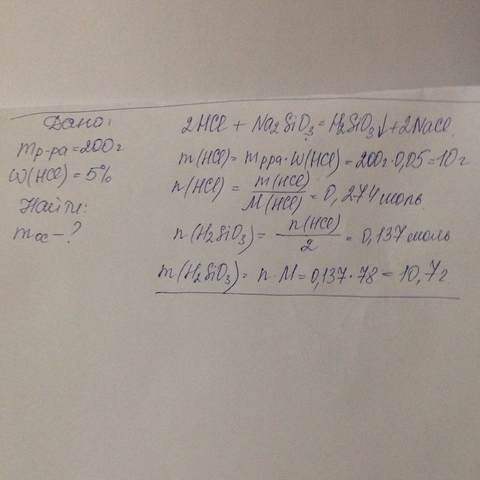 Дано:
mр-ра=200г
W(HCl)=5%
Найти:
mос-?
2HCl + Na₂SiO₃ = H₂SiO₃↓ + 2NaCl
m(HCl)= mрра·W(HCl)=200г·0,05=10г
n(HCl) = m(HCl)/M(HCl) = 0,274моль
n(H₂SiO₃) = n(HCl)/2 = 0,137моль
m(H₂SiO₃)= n·M=0,137·78=10,7г